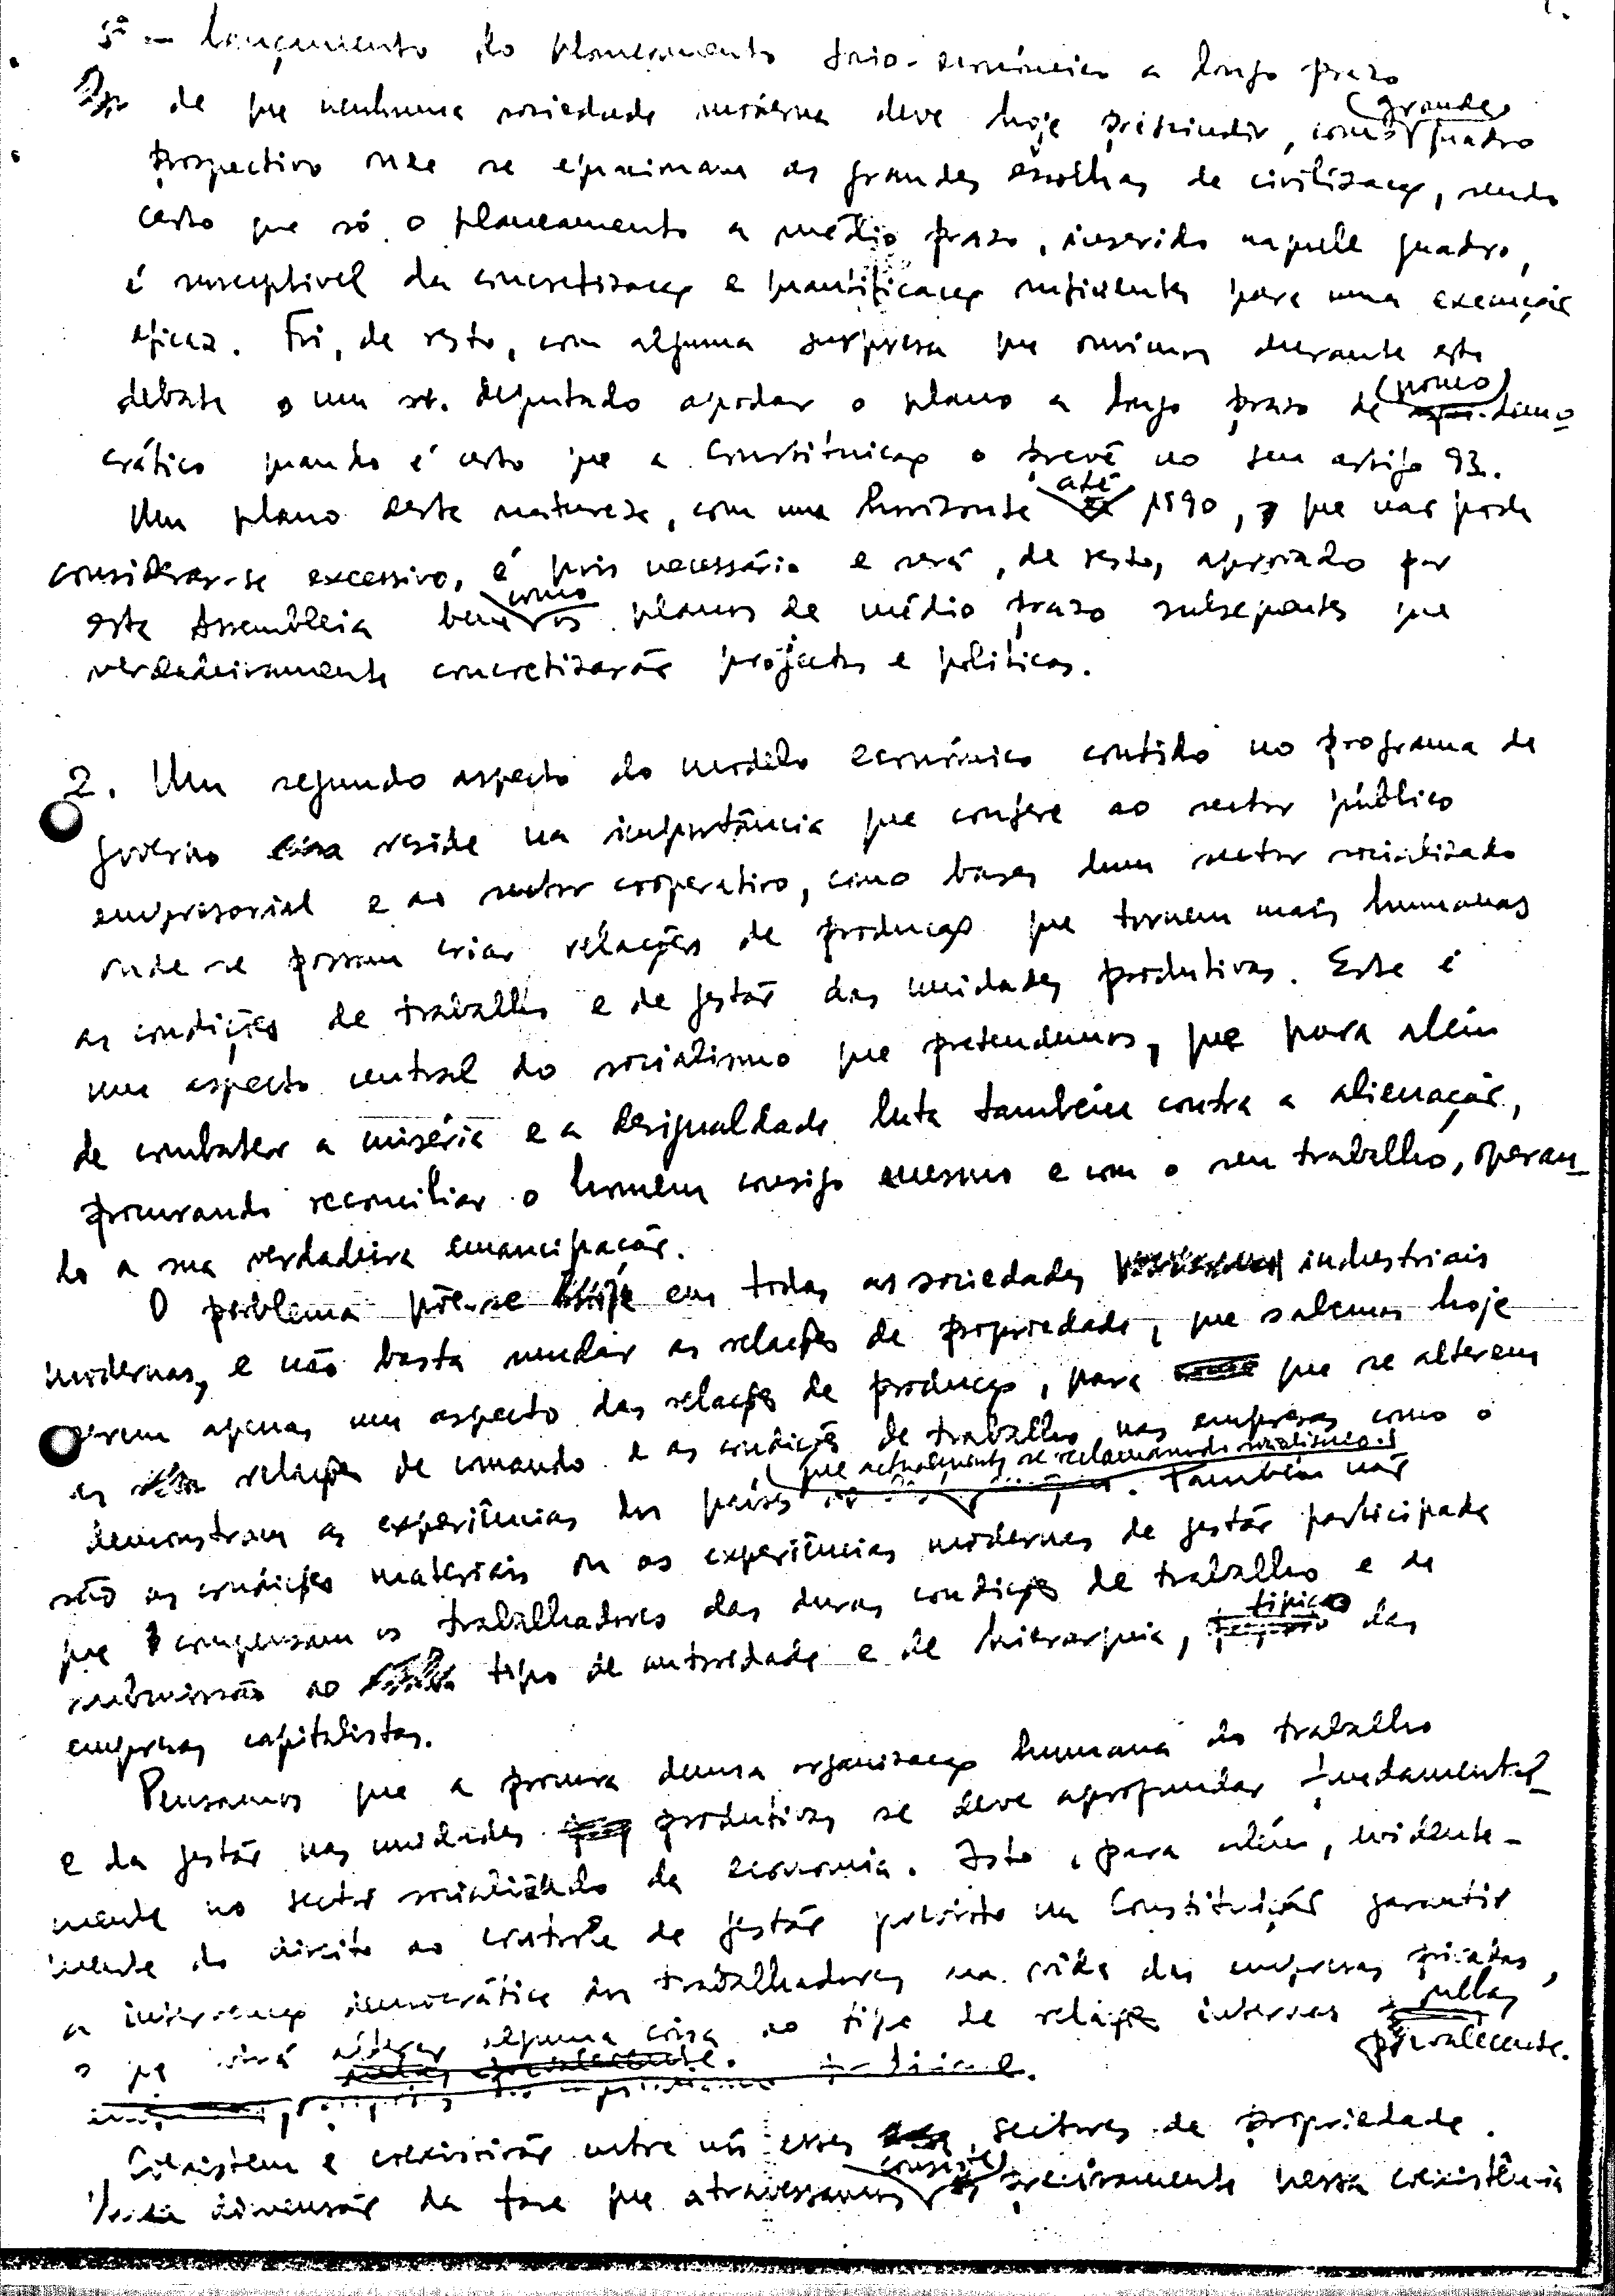 5º - lançamento do planeamento sócio-económico a longo prazo
de que nenhuma sociedade moderna deve hoje prescindir, como grande quadro
prospectivo onde se equacionam as grandes escolhas de civilização, sendo
certo que só o planeamento a médio prazo, inserido naquele quadro,
é susceptível da concretização e quantificação suficientes para uma execução
eficaz. Foi, de resto, com alguma surpresa que ouvimos durante este
debate a um sr. deputado apodar o plano a longo prazo de pouco demo
crático quando é certo que a Constituição o prevê no seu artigo 93.
Um plano desta natureza, com um horizonte até 1990, que não pode
considerar-se excessivo, é pois necessário e será, de resto, apreciado por
esta Assembleia bem como os planos de médio prazo subsequentes que
verdadeiramente concretizarão projectos e políticas.
2. Um segundo aspecto do modelo económico contido no programa de
governo reside na importância que confere ao sector público
empresarial e ao sector cooperativo, como bases dum sector socializado
onde se possam criar relações de produção que tornem mais humanas
as condições de trabalho e de gestão das unidades produtivas. Este é
um aspecto central do socialismo que pretendemos, que para além
de combater a miséria e a desigualdade luta também contra a alienação,
procurando reconciliar o homem consigo mesmo e com o seu trabalho, operan
do a sua verdadeira emancipação.
O problema põe-se em todas as sociedades industriais
modernas, e não basta mudar as relações de propriedade, que sabemos hoje
serem apenas um aspecto das relações de produção, para que se alterem
as relações de comando e as condições de trabalho nas empresas como o
demonstram as experiências dos países que actualmente se reclamam do socialismo. Também não
são as condições materiais ou as experiências modernas de gestão participada
que compensam os trabalhadores das duras condições de trabalho e de
submissão ao tipo de autoridade e de hierarquia, típicas das
empresas capitalistas.
Pensamos que a procura duma organização humana do trabalho
e da gestão nas unidades produtivas se deve aprofundar fundamental
mente no sector socializado da economia. Isto, para além, evidente-
mente do direito ao controle de gestão previsto na Constituição garantir
a intervenção democrática dos trabalhadores na vida das empresas privadas,
o que virá alterar alguma coisa no tipo de relações internas nelas
prevalecente.
Coexistem e coexistirão entre nós esses sectores de propriedade.
dimensão da fase que atravessamos consiste precisamente nessa coexistência